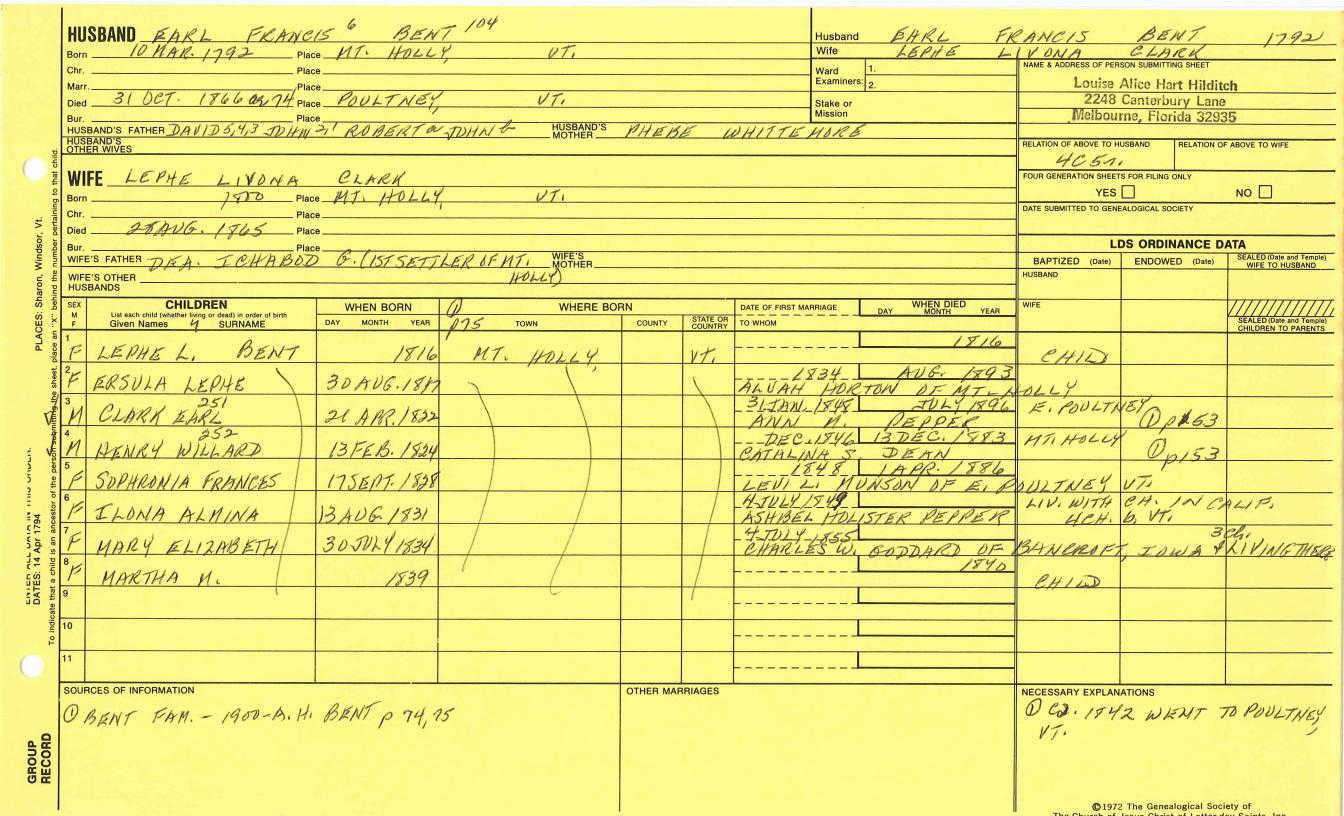 HUSBAND EARL FRANCIS 6 BENT 104
Born 10 MAR. 1792 Place MT. HOLLY, VT.
Chr. Place
Marr. Place
Died 31 OCT. 1866 ae 74 Place POULTNEY, VT.
Bur. Place
HUSBAND'S FATHER DAVID 5,4,3 JOHN 2,1 ROBERT a JOHN b HUSBAND'S MOTHER PHEBE WHITTEMORE
HUSBAND'S OTHER WIVES
WIFE LEPHE LIVONA CLARK
Born 1800 Place MT. HOLLY, VT.
Chr. Place
Died 28 AUG. 1865 Place
Bur. Place
WIFE'S FATHER DEA. ICHABOD G. (1ST SETTLER OF MT. HOLLY) WIFE'S MOTHER
WIFE'S OTHER HUSBANDS
Husband EARL FRANCIS BENT 1792
Wife LEPHE LIVONA CLARK
Ward Examiners: 1.
2.
Stake or Mission
NAME & ADDRESS OF PERSON SUBMITTING SHEET
Louise Alice Hart Hilditch
2248 Canterbury Lane
Melbourne, Florida 32935
RELATION OF ABOVE TO HUSBAND RELATION OF ABOVE TO WIFE
4C5r.
FOUR GENERATION SHEETS FOR FILING ONLY
YES NO
DATE SUBMITTED TO GENEALOGICAL SOCIETY
LDS ORDINANCE DATA
BAPTIZED (Date) ENDOWED (Date) SEALED (Date and Temple) WIFE TO HUSBAND
HUSBAND
WIFE
SEALED (Date and Temple) CHILDREN TO PARENTS
SEX M F CHILDREN WHEN BORN ① WHERE BORN DATE OF FIRST MARRIAGE WHEN DIED
List each child (whether living or dead) in order of birth
Given Names 4 SURNAME DAY MONTH YEAR p75 TOWN COUNTY STATE OR COUNTRY TO WHOM DAY MONTH YEAR
1 F LEPHE L. BENT 1816 MT. HOLLY, VT. 1816 CHILD
2 F ERSULA LEPHE 30 AUG. 1817 1834 AUG. 1893
ALVAH HORTON OF MT. HOLLY
3 M CLARK EARL 251 21 APR. 1822 3 JAN. 1848 JULY 1896 E. POULTNEY
ANN M. PEPPER ① p153
4 M HENRY WILLARD 252 13 FEB. 1824 DEC. 1846 13 DEC. 1883 MT. HOLLY
CATALINA S. DEAN ① p153
5 F SOPHRONIA FRANCES 17 SEPT. 1828 1848 1 APR. 1886
LEVI L. MUNSON OF E. POULTNEY VT.
6 F ILONA ALMINA 13 AUG 1831 4 JULY 1849 LIV. WITH CH. IN CALIF.
ASHBEL HOLISTER PEPPER 4CH. b. VT.
7 F MARY ELIZABETH 30 JULY 1834 4 JULY 1855 3 ch.
CHARLES W. GODDARD OF BANCROFT, IOWA & LIVING THERE
8 F MARTHA M. 1839 1840 CHILD
9
10
11
SOURCES OF INFORMATION
① BENT FAM. - 1900 - A.H. BENT p 74,75
OTHER MARRIAGES
NECESSARY EXPLANATIONS
① ca. 1842 WENT TO POULTNEY, VT.
©1972 The Genealogical Society of
The Church of Jesus Christ of Latter-day Saints, Inc.
PLACES: Sharon, Windsor, Vt.
To indicate that a child is an ancestor of the person submitting the sheet, place an "X" behind the number pertaining to that child.
ENTER ALL DATA IN THIS ORDER:
DATES: 14 Apr 1794
GROUP RECORD